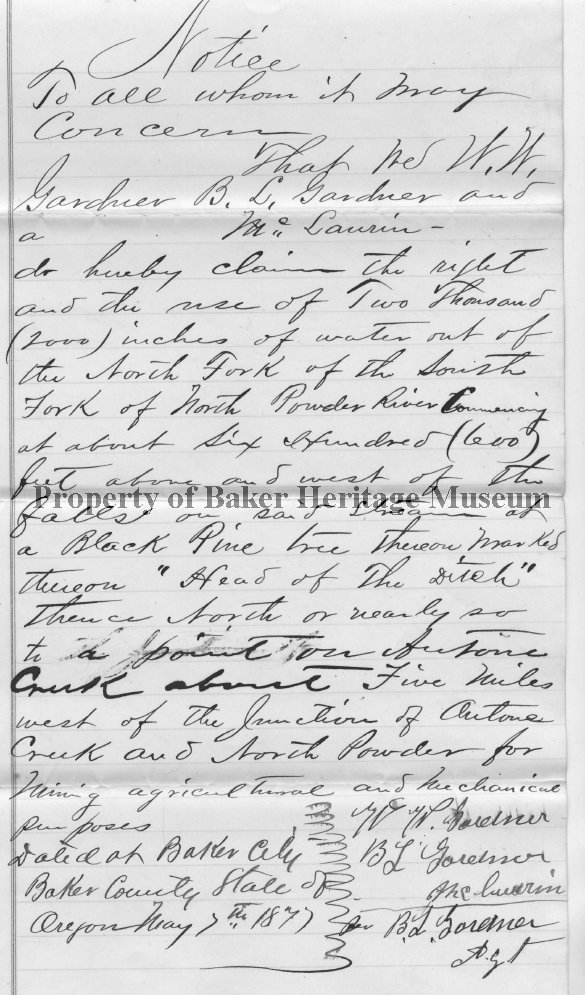 Notice
To all whom it may
Concern
That We W. W.
Gardner B. L. Gardner and
a Mc Laurin -
do hereby claim the right
and the use of Two Thousand
(2000) inches of water out of
the North Fork of the South
Fork of North Powder River Commencing
at about Six Hundred (600)
feet above and west of the
Property of Baker Heritage Museum
falls on said Stream at
a Black Pine tree thereon Marked
thereon "Head of The Ditch"
thence North or nearly so
to a point on Antone
Creek about Five Miles
west of the Junction of Antone
Creek and North Powder for
Mining agricultural and Mechanical
purposes
W. W. Gardner
Dated at Baker City
B L Gardner
Baker County State of
Mc Laurin
Oregon May 7th 1877
per B. L. Gardner
Agt